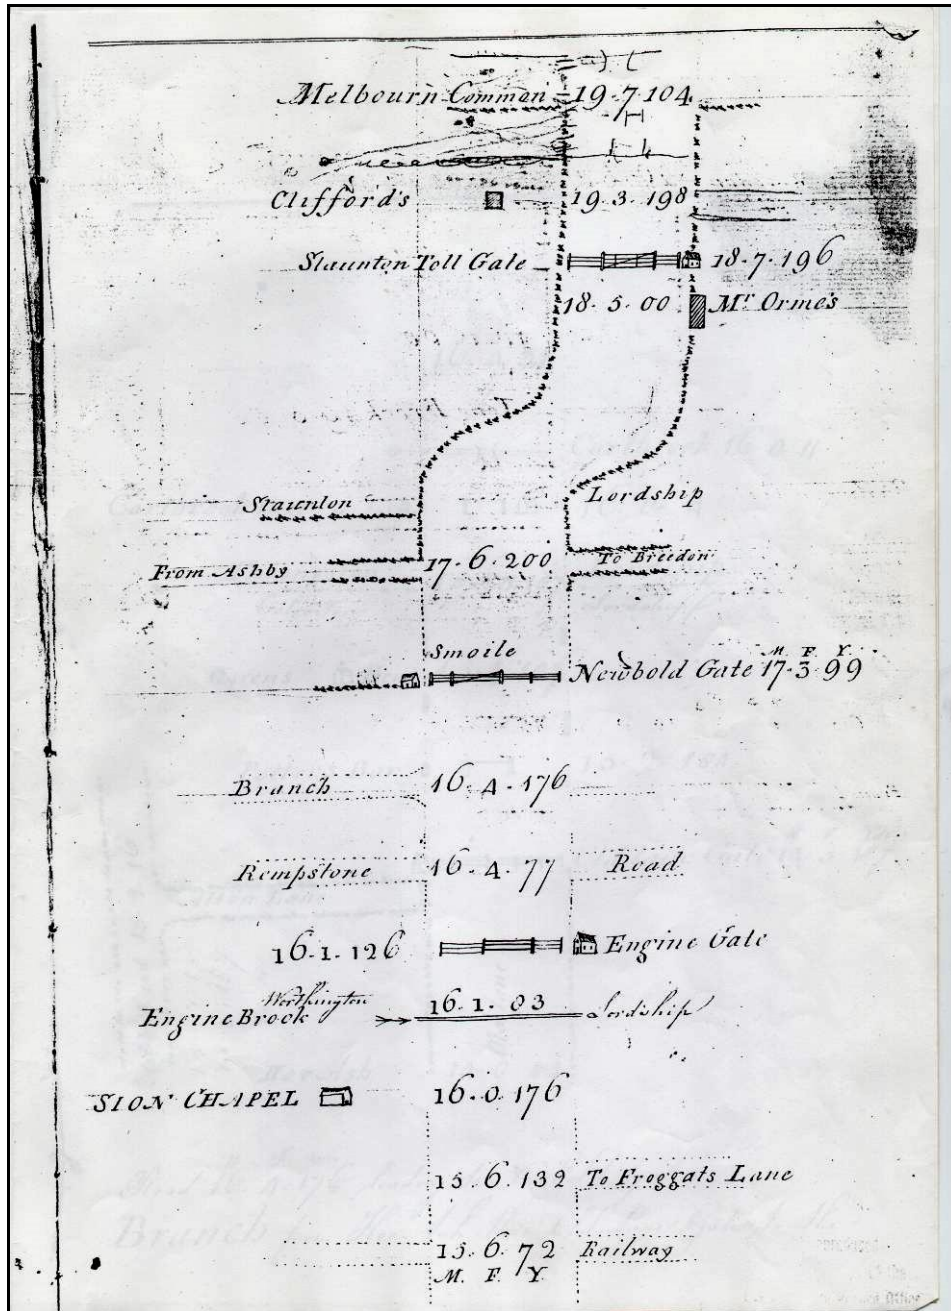 Melbourn Common 19.7.104
Clifford's 19.3.198
Staunton Toll Gate 18.7.196
18.5.00 Mr Orme's
Lordship
Staunton
From Ashby 17.6.200 To Breedon
Smoile
M F Y
Newbold Gate 17.3.99
Branch 16.4.176
Rempstone 16.4.77 Road
16.1.126 Engine Gate
Worthington
Engine Brook 16.1.03 Lordship
SION CHAPEL 16.0.176
15.6.132 To Froggats Lane
15.6.72 Railway
M. F. Y.
Branch